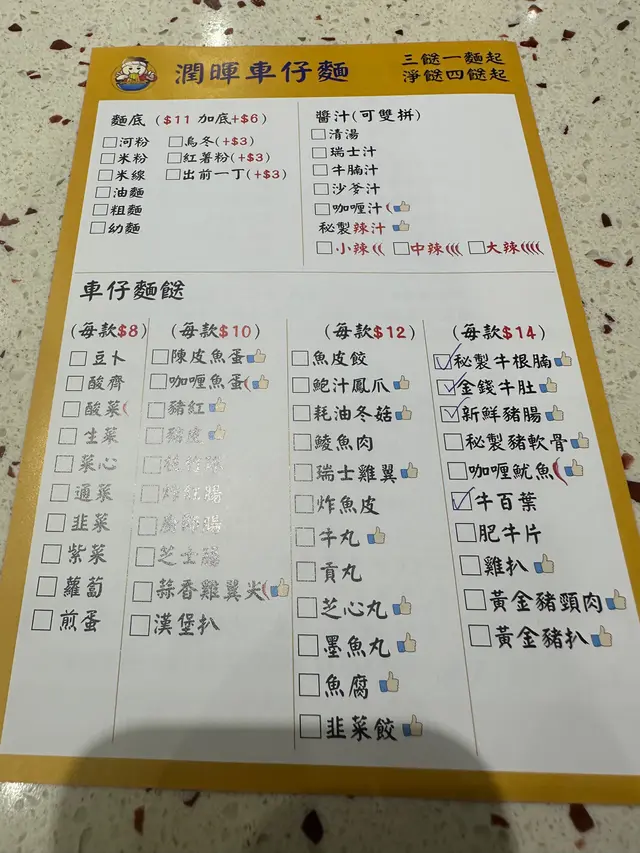 潤暉車仔麵
三餸一麵起
淨餸四餸起
麵底 ($11 加底+$6)
河粉
烏冬(+$3)
米粉
紅薯粉(+$3)
米線
出前一丁(+$3)
油麵
粗麵
幼麵
醬汁(可雙拼)
清湯
瑞士汁
牛腩汁
沙爹汁
咖喱汁
秘製辣汁
小辣
中辣
大辣
車仔麵餸
(每款$8)
豆卜
酸齋
酸菜
生菜
菜心
通菜
韭菜
紫菜
蘿蔔
煎蛋
(每款$10)
陳皮魚蛋
咖喱魚蛋
豬紅
豬皮
芝士腸
蒜香雞翼尖
漢堡扒
(每款$12)
魚皮餃
鮑汁鳳爪
耗油冬菇
鯪魚肉
瑞士雞翼
炸魚皮
牛丸
貢丸
芝心丸
墨魚丸
魚腐
韭菜餃
(每款$14)
秘製牛根腩
金錢牛肚
新鮮豬腸
秘製豬軟骨
咖喱魷魚
牛百葉
肥牛片
雞扒
黃金豬頸肉
黃金豬扒